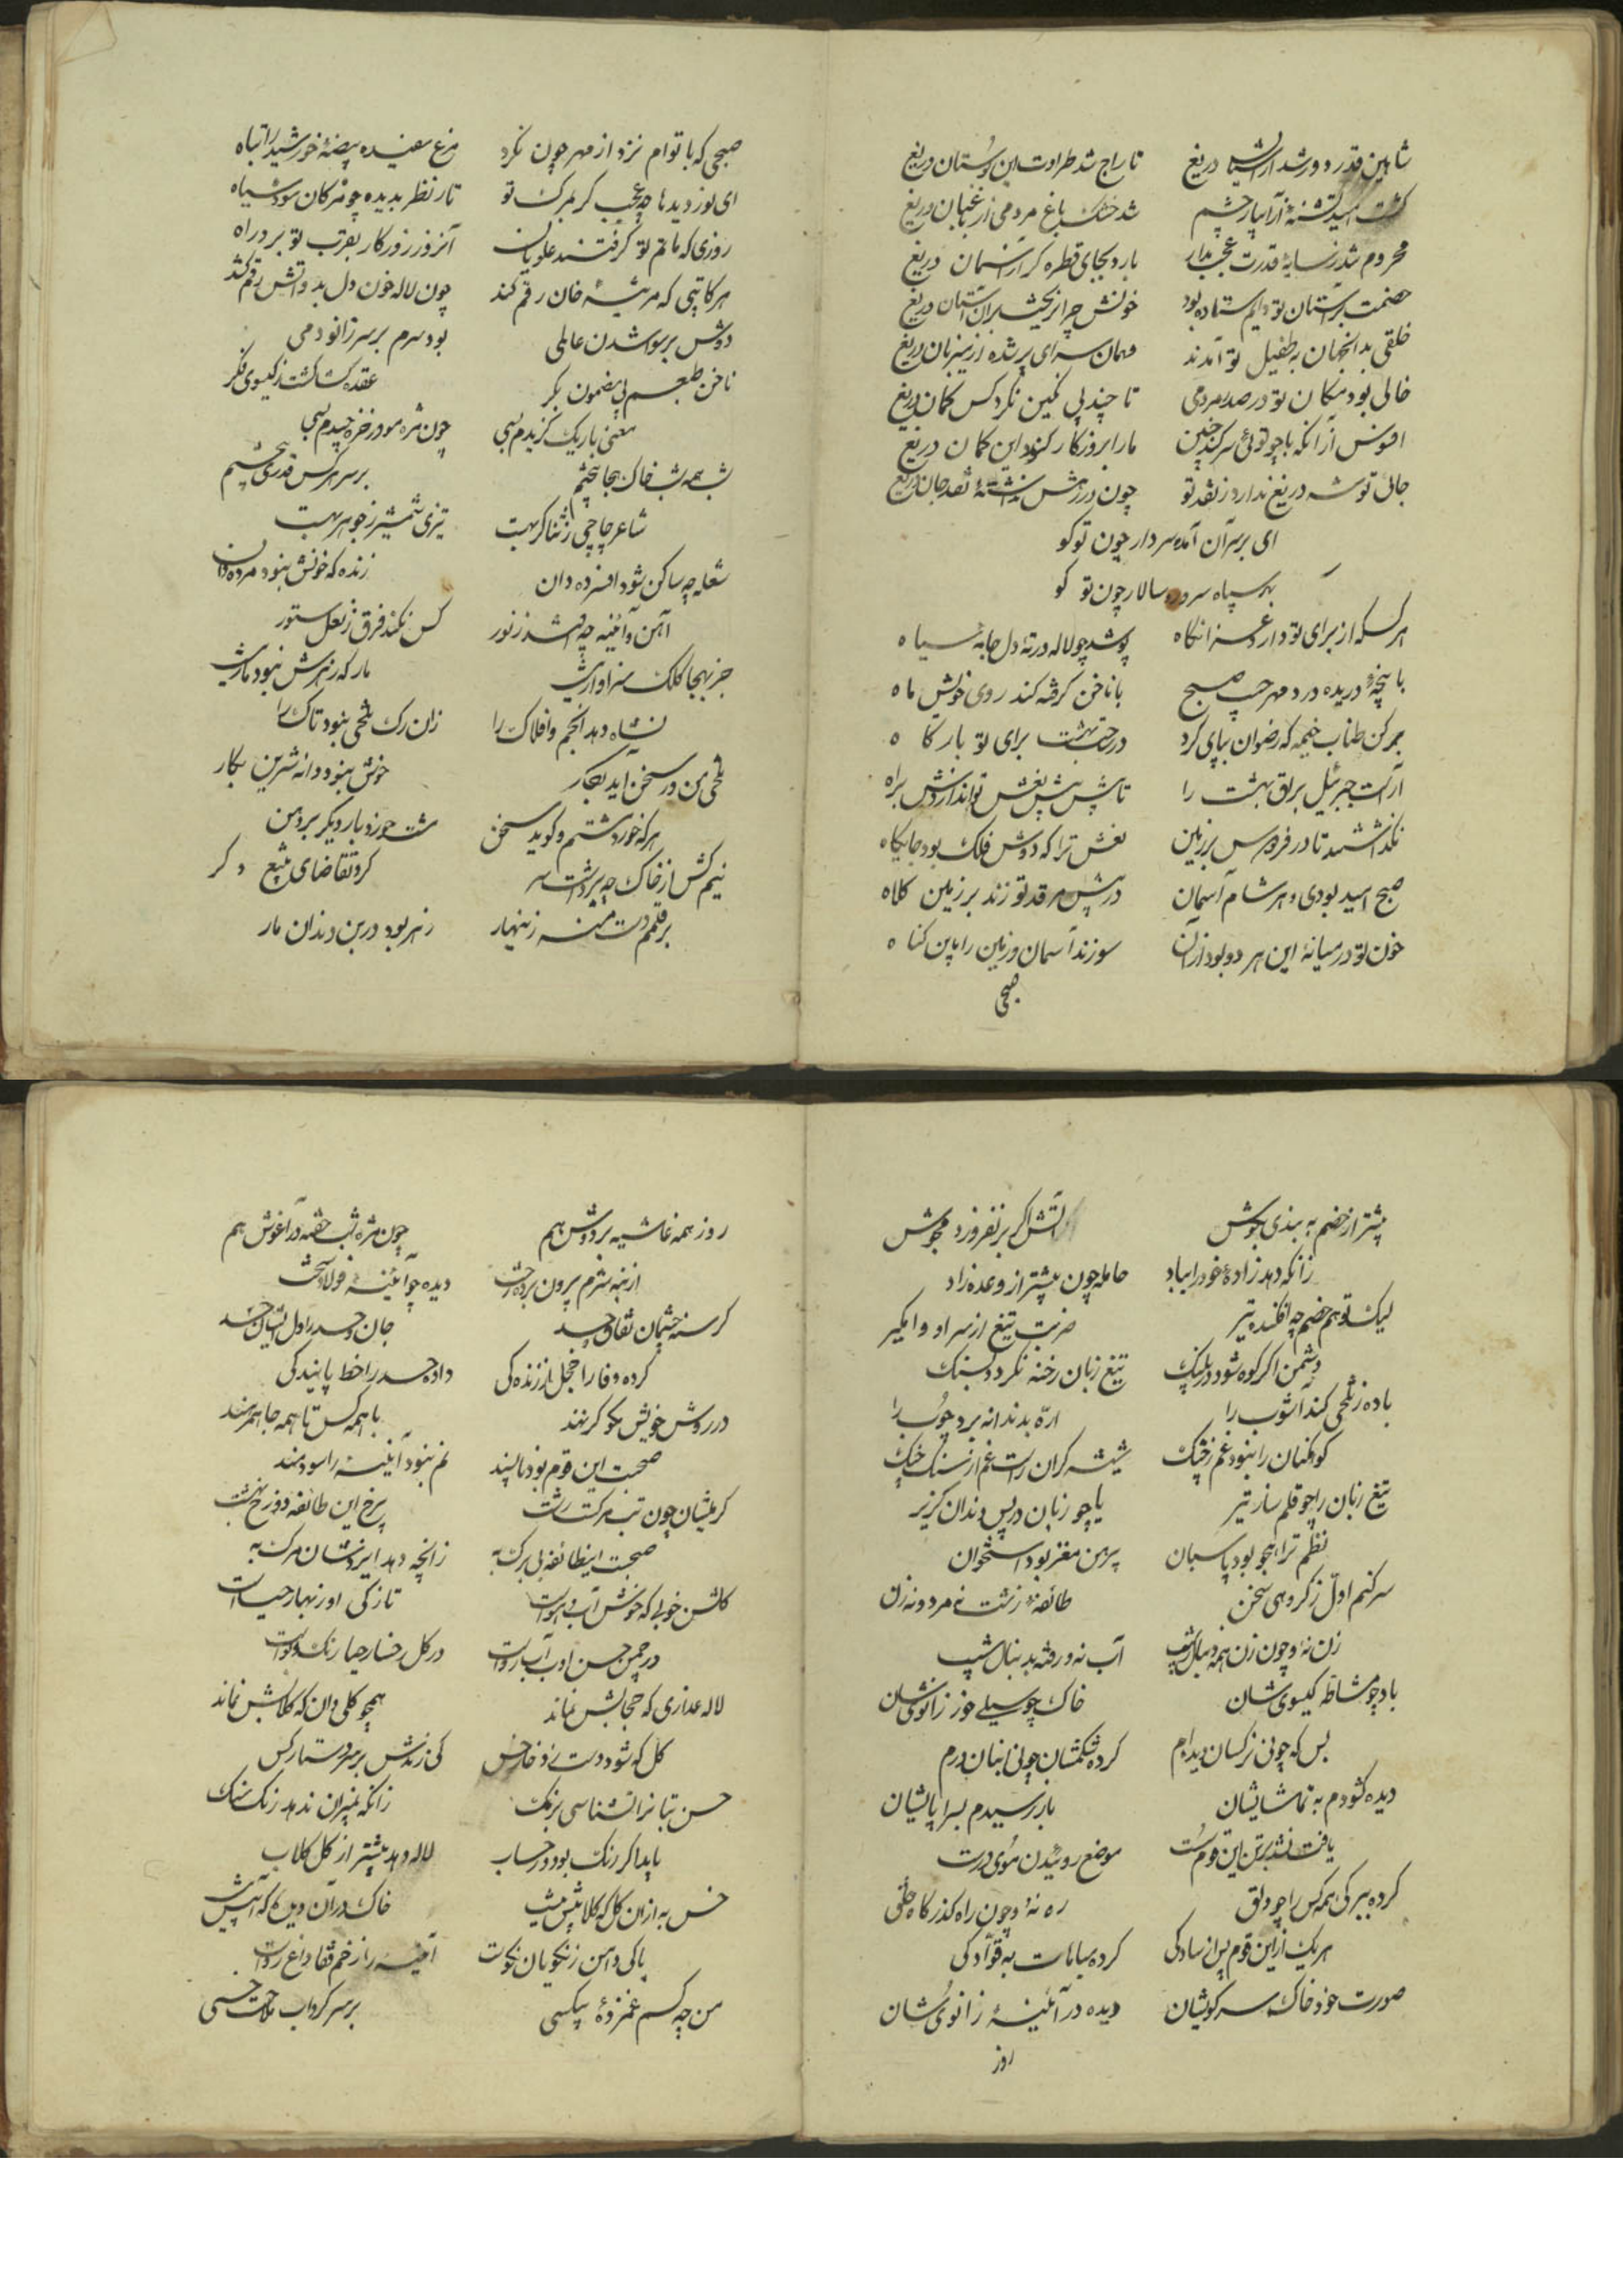 شاهین قدر دور شد از آشیان دریغ تاراج شد طراوت این بوستان دریغ
کشت امید تشنه آبیار چشم شد خشک باغ مردمی از باغبان دریغ
محروم شد ز سایه قدرت عجب مدار بارد بجای قطره کر از آسمان دریغ
خصمت بر آستان تو دایم ستاده بود خونش چرا نریخت بران آستان دریغ
خلقی بدانجهان به طفیل تو آمدند مهمان سرای پر شده از میزبان دریغ
خالی بود مکان تو در صدر مردمی تا چند پی کمین نکرد کس کمان دریغ
افسوس آنکه با چو تویی سر کند چنین ما را بروزگار نبود این کمان دریغ
جائی توشه دریغ ندارد ز نقد تو چون در رهش نقد جان دریغ
ای بر سر آن آمده سردار چون تو کو
بهر سپاه سرور سالار چون تو کو
هر کس که از برای تو دارد عزا نگاه پوشد چو لاله در ته دل جامه سیاه
با پنجه دریده درد مهر جیب صبح با ناخن گرفته کند روی خویش ماه
برکن طناب خیمه که رضوان بپای کرد در جنت بهشت برای تو بارگاه
آراست جبرئیل براق بهشت را تا پیش پیش نعش تو اندازدش براه
نگذاشتند تا در فردوس بر زمین نعش ترا که دوش فلک بود جایگاه
صبح امید بودی و هر شام آسمان در پیش مرقد تو زند بر زمین کلاه
خون تو در میانه این هر دو بود ازان سوزند آسمان و زمین را باین کناه
صبحی
صبحی که با تو دم نزد از مهر چون نکرد مرغ سفیده بیضه خورشید را تباه
ای نور دیدها چه عجب گر بمرگ تو تار نظر بدیده چو مژکان شود سیاه
روزی که ماتم تو گرفتند علویان آنروز روزگار بقرب تو برد راه
هر کاتبی که مرثیه خان رقم کند چون لاله خون دل بدواتش رقم کشد
دوش برسوا شدن عالمی بود سرم بر سر زانو دمی
ناخن طبعم پی مضمون بکر عقده کشا گشت ز کیسوی فکر
معنی باریک گزیدم بسی چون مژه مو در نظره چیدم بسی
شب همه شب خاک بجا بیختم بر سر هر کس قدری بیختم
شاعر چاچی ز ثنا گر بهست تیزی شمشیر ز جوهر بهست
شعله چه ساکن شود افسرده دان زنده که خونش نبود مرده دان
آهن و آئینه چه باشد ز نور کس نکند فرق ز نعل ستور
جز بهجا کلک سزاوار نیست مار که زهرش نبود مار نیست
نشاه دهد انجم و افلاک را زان رگ تلخی نبود تاک را
تلخی من در سخن آید بکار خوش نبود دانه شیرین بکار
هرکه خورد شتم و گوید سخن مشت خورد بار دیگر بر دهن
نیم کش از خاک چه برداشت سر کرد تقاضای تیغ دگر
بر قلمم دست منه زینهار زهر بود در بن دندان مار
پیشتر از خصم به بندی بجوش آتش اگر بر نفروزد مجوش
زانکه دهد زاده خود را بباد حامله چون پیشتر از وعده زاد
لیک تو هم خصم چه افکند تیر ضربت تیغ از سر او وامگیر
دشمن اگر کوه شود در پلنگ تیغ زبان رخنه نگردد بسنگ
باده ز تلخی کند آشوب را اره بدندانه برد چوب را
کوهکنان را نبود غم ز خشک شیشه گران راست غم از سنگ خشک
تیغ زبان را چو قلم ساز تیر یا چو زبان در پس دندان گزیر
نظم ترا هجو بود پاسبان پیرهن مغز بود استخوان
سر کنم اول ز گروهی سخن طائفه زشت نه مرد و نه زن
زن نه و چون زن همه دنبال شیب آب نه و رفته بدنبال شیب
باد چو مشاطه کیسوی شان خاک چو سیلی خور زانوی شان
بس که چونی نرکسان دیده ام کرده شکمشان چو نی انبان ورم
دیده گشودم به تماشایشان بار رسیدم بسراپایشان
یافت نشد برتن این قوم سست موضع روئیدن موی درست
کرده ببر کی همه کس را چو دلق ره نه و چون راه گذرگاه خلق
هر یک ازین قوم پر از سادگی کرده مباهات به قوادگی
صورت خود خاک سر کویشان دیده در آئینه زانویشان
روز
روز همه غاشیه بر دوش هم چون مژه شب خفته در آغوش هم
از بنه شرم برون برده رخت دیده چو آئینه فولاد سخت
گرسنه چشمان نفاق و حسد جان و حسد را دل ایشان جسد
کرده وفا را خجل از زندگی داده حسد را خط پایندگی
در روش خویش نکو کرنند با همه کس تا همه جا همرهند
صحبت این قوم بود ناپسند نم نبود آینه را سودمند
گرمیشان چون تب مرگست زشت برخ این طائفه دوزخ بهشت
صحبت اینطائفه بی برگ به زانچه دهد ایزدشان مرگ به
گلشن خوبی که خوش آب و هواست تازگی او ز بهار حیاست
در چمن حسن ادب آب رواست در گل رخسار حیا رنگ و بوست
لاله عذاری که حجابش نماند همچو گلی دان که گلابش نماند
گل که شود دست زد خار و خس کی زندش بر سر دستار کس
حسن بتانرا نشناسی برنگ زانکه بمیزان ندهد رنگ سنگ
پایدا گر رنگ بود در حساب لاله دهد بیشتر از گل گلاب
خس به ازان گل که گلابیش نیست خاک در آن دیده که آبیش نیست
پاکی دامن ز نکویان نکوست آینه را زخم قفا داغ روست
من چه کسم غمزده بیکسی بر سر گرداب ملامت خسی